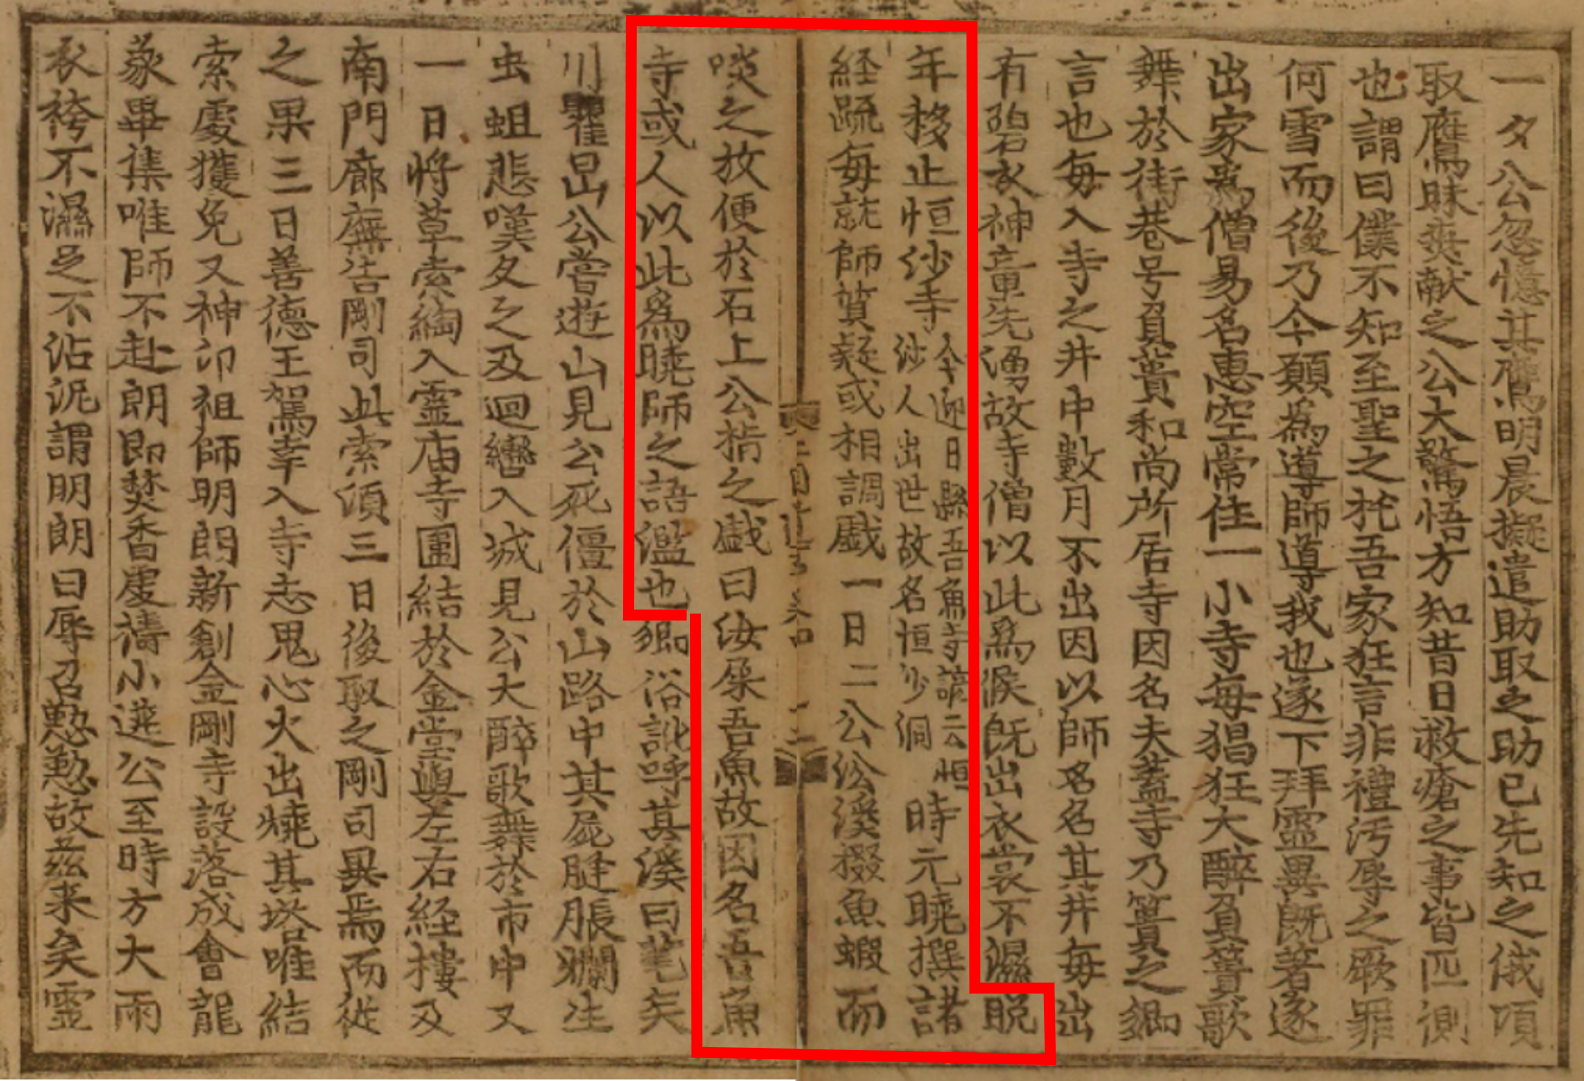 一夕公忽憶其鷹明晨擬遣助取之助已先知之俄頃
取鷹昧爽献之公大驚悟方知昔日救瘡之事皆匹測
也謂曰僕不知至聖之托吾家狂言非禮汚辱之厥罪
何雪而後乃今願爲導師導我也遂下拜靈異旣著遂
出家爲僧易名惠空常住一小寺每猖狂大醉負簣歌
舞於街巷号負簣和尚所居寺因名夫蓋寺乃簣之鄕
言也每入寺之井中數月不出因以師名名其井每出
有碧衣神童先湧故寺僧以此爲候旣出衣裳不濕脫
年移止恒沙寺今迎日縣吾魚寺諺云恒沙人出世故名恒沙洞時元曉撰諸
経䟽每就師質疑或相調戱一日二公沿溪掇魚蝦而
啖之放便於石上公指之戱曰汝屎吾魚故因名吾魚
寺或人以此爲曉師之語濫也鄕俗訛呼其溪曰芼矣
川瞿旵公嘗遊山見公死僵於山路中其屍膖脹爛生
虫蛆悲嘆久之及迴轡入城見公大醉歌舞於市中又
一日將草索綯入靈庙寺圍結於金堂與左右経樓及
南門廊廡告剛司此索須三日後取之剛司異焉而從
之果三日善德王駕幸入寺志鬼心火出燒其塔唯結
索處獲免又神印祖師明朗新創金剛寺設落成會龍
象畢集唯師不赴朗即焚香虔禱小選公至時方大雨
衣袴不濕足不沾泥謂明朗曰辱召懃懃故玆来矣靈